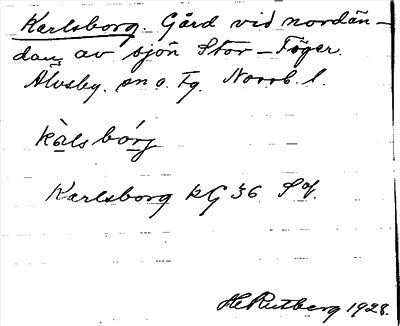 Karlsborg. Gård vid nordän-
dan av sjön Stor-Töger.
Älvsby. sn o. tg. Norrb. l.
kàlsbórg
Karlsborg kG 36 Sq.
HcRutberg 1928.